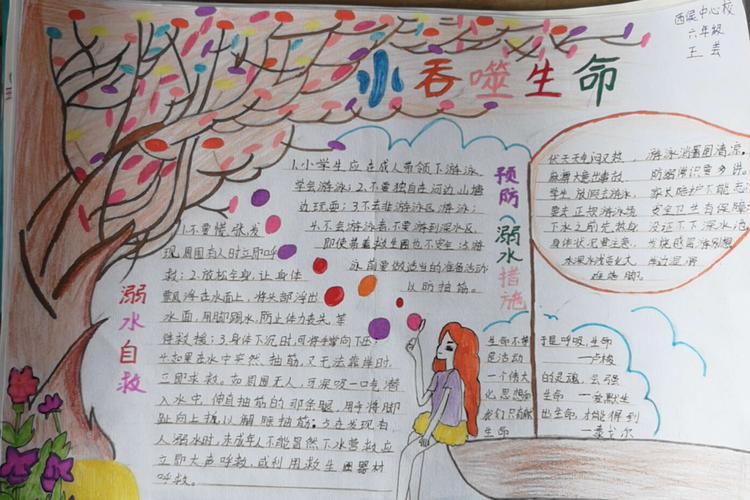 西偃中心校
六年级
王芸
小吞噬生命
预防溺水措施
溺水自救
1.小学生应在成人带领下游泳,
学会游泳;2.不要独自在河边、山塘
边玩耍;3.不去非游泳区游泳;
4.不会游泳者,不要游到深水区,
即使带着救生圈也不安全;5.游
泳前要做适当的准备活动
以防抽筋。
1.不要慌张,发
现周围有人时立即呼
救;2.放松全身,让身体
飘浮在水面上,将头部浮出
水面,用脚踢水,防止体力丧失,等
待救援;3.身体下沉时,可将手掌向下压;
4.如果在水中突然抽筋,又无法靠岸时,
立即求救。如周围无人,可深吸一口气潜
入水中,伸直抽筋的那条腿,用手将脚
趾向上扳,以解除抽筋;5.在发现有
人溺水时,未成年人不能冒然下水营救,应
立即大声呼救,或利用救生圈器材
呼救。
伏天天气闷又热,游泳消暑图清凉。
麻痹大意出事故,防溺常识要多讲。
学生放假去游泳,家长陪护不能忘。
要去正规游泳场,安全卫生有保障。
下水之前先热身,没证不下深水池。
身体状况要注意,
水深水浅
生命不等于是呼吸,生命
是活动——卢梭
一个伟大的灵魂,会强
化思想和生命——爱默生
我们只有献出生命,才能得到
生命——泰戈尔